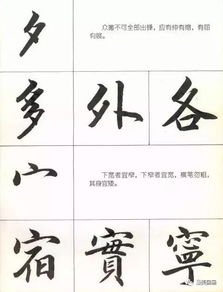 夕
众撇不可全部出锋，应有伸有缩，有屈
有收。
多 外 各
宀
下宽者宜窄，下窄者宜宽，横笔勿粗，
其身宜矮。
宿 實 寧